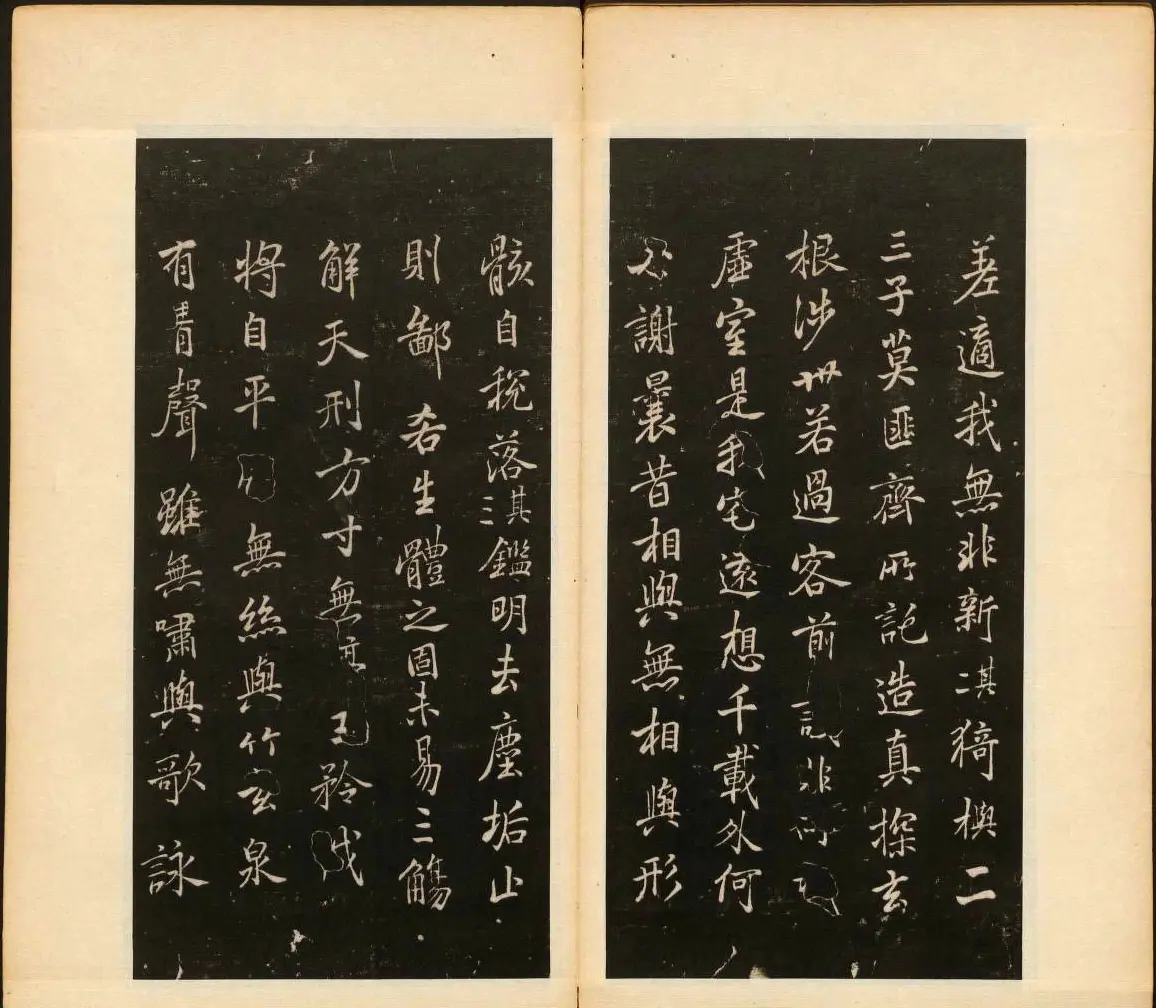 差適我無非新其二猗與二
三子莫匪齊所託造真探玄
根涉世若過客前識非所
虛室是我宅遠想千載外何
必謝曩昔相與無相與形
骸自税落其三鑑明去塵垢止
則鄙吝生體之固未易三觴
解天刑方寸無主矜伐
將自平無絲與竹玄泉
有青聲雖無嘯與歌詠